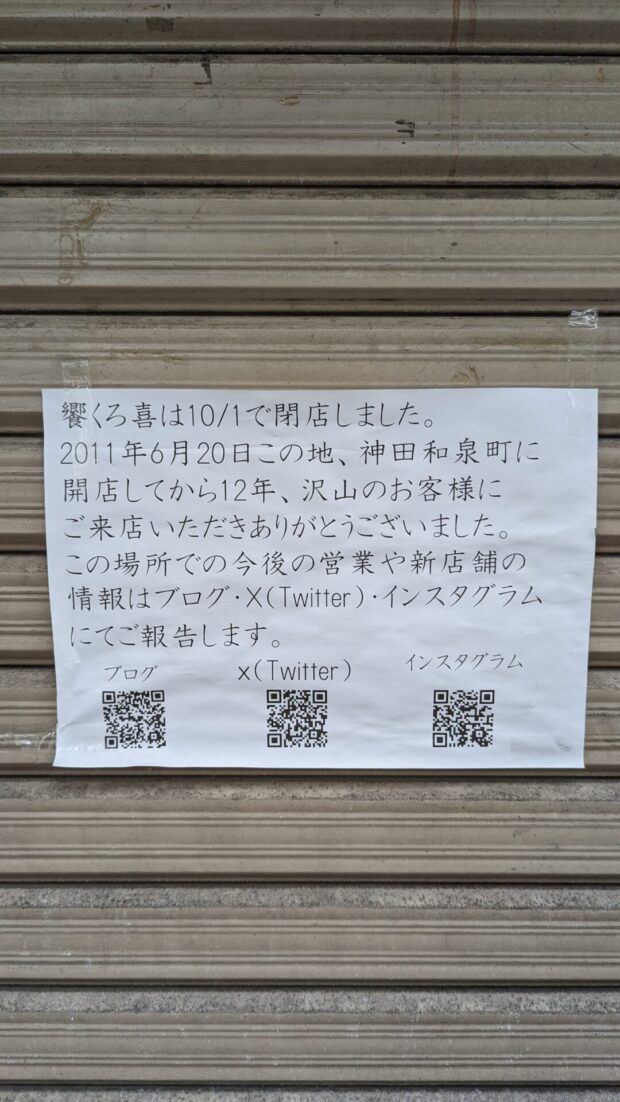 饗くろ喜は10/1で閉店しました。
2011年6月20日この地、神田和泉町に
開店してから12年、沢山のお客様に
ご来店いただきありがとうございました。
この場所での今後の営業や新店舗の
情報はブログ・X(Twitter)・インスタグラム
にてご報告します。
ブログ x(Twitter) インスタグラム